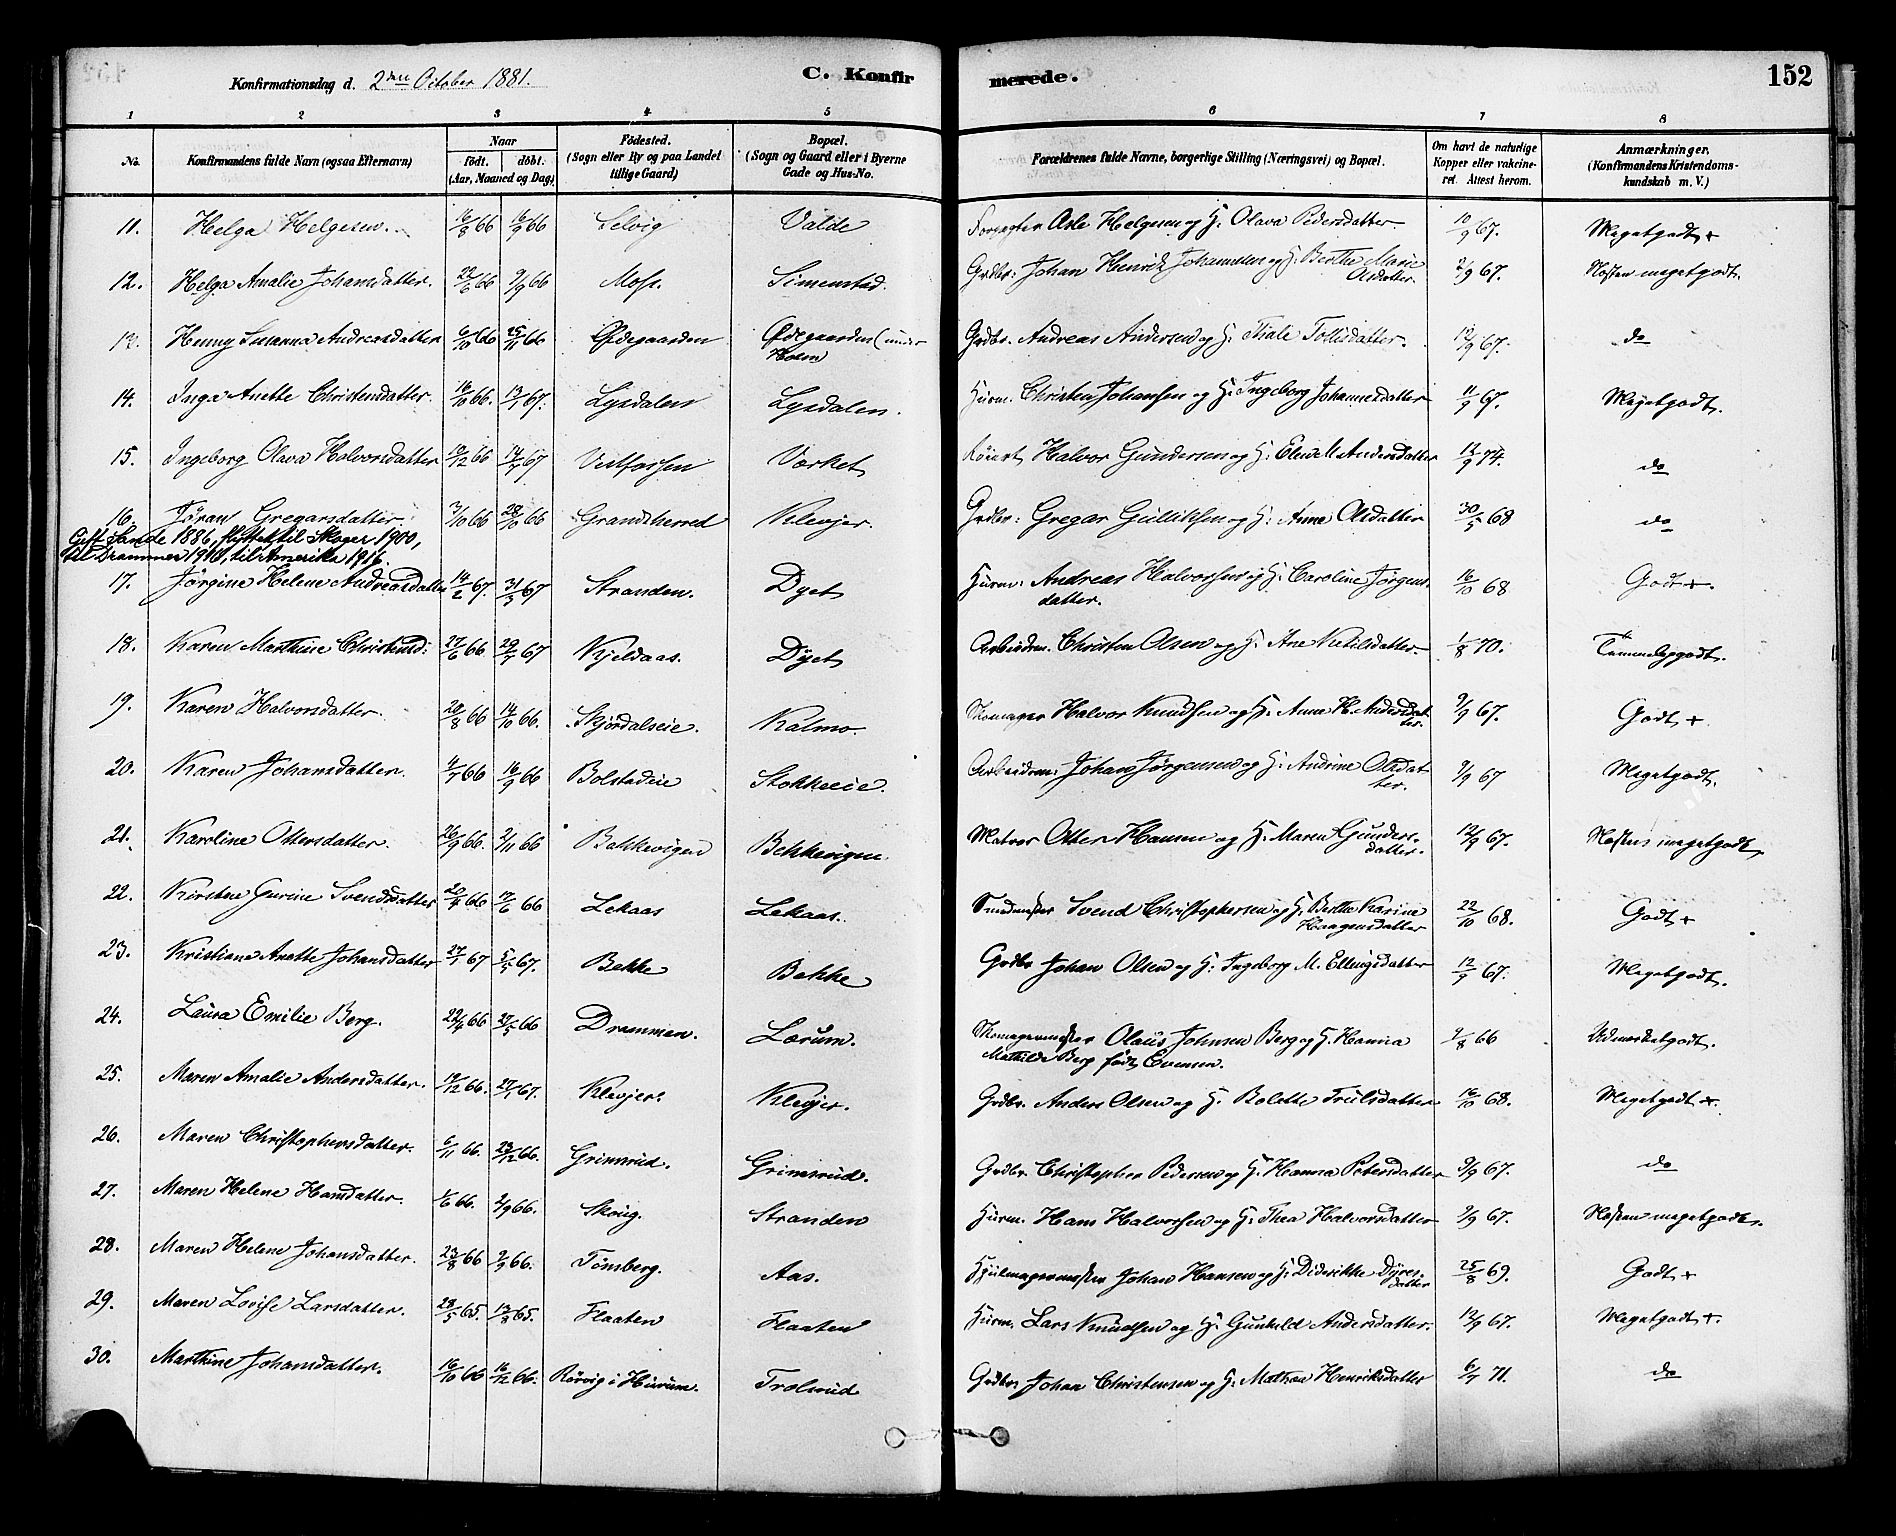 Konfirmationsdag d. 2den October 1881.
C. Konfirmerede.
152
1 2 3 4 5 6 7 8
No. Konfirmandens fulde Navn (ogsaa Efternavn) Naar født. døbt. (Aar, Maaned og Dag) Fødested. (Sogn eller By og paa Landet tillige Gaard) Bopæl. (Sogn og Gaard eller i Byerne Gade og Hus-No. Forældrenes fulde Navne, borgerlige Stilling (Næringsvei) og Bopæl. Om havt de naturlige Kopper eller vakcineret. Attest herom. Anmærkninger. (Konfirmandens Kristendomskundskab m. V.)
11. Helga Helgesen. 16/8 66 16/9 66 Selvig Valde Forpagter Asle Helgesen og H. Olava Pedersdatter. 10/9 67. Megetgodt +
12. Helga Amalie Johansdatter. 22/6 66 2/9 66 Moss. Simenstad. Grdbr: Johan Henrik Johannesen og H. Berthe Marie Olsdatter. 2/9 67. Næsten megetgodt.
13. Henny Susanna Andreasdatter 6/10 66 25/11 66 Ødegaarden Ødegaarden (under Holm) Grdbr. Andreas Andersen og H. Thale Tollisdatter. 12/9 67. do
14. Inga Anette Christensdatter. 16/10 66. 13/1 67. Lysdalen Lysdalen. Hurm. Christen Johansen og H. Ingeborg Johannesdatter 11/9 67. Megetgodt.
15. Ingeborg Olava Halvorsdatter 10/12 66 14/7 67 Vestfossen Værket Halvor Gundersen og H. Eline M. Andersdatter 12/9 74. do
16. Jøran Gregarsdatter. 3/10 66 28/10 66 Grandsherred Klevjer. Grdbr: Gregar Gulliksen og H. Anne Olsdatter 30/5 68 do
Gift Sande 1886, flyttet til Skoger 1900,
til Drammen 1911, til Amerika 1916.
17. Jørgine Helene Andreasdatter 14/2 67. 31/3 67 Stranden. Dyet Hurm: Andreas Halvorsen og H. Caroline Jørgensdatter. 16/10 68 Godt +.
18. Karen Marthine Christensd: 27/6 66 29/7 67 Kjeldaas. Dyet Arbeidsm. Christen Olsen og H. Ane Ketilsdatter. 1/8 70. Temmeliggodt.
19. Karen Halvorsdatter. 20/8 66 14/10 66. Skjørdalseie. Kalmo. Skomager Halvor Knudsen og H. Anne K. Andersdatter. 2/9 67. Godt +
20. Karen Johansdatter. 4/7 66 16/9 66 Bolstadeie Stokkeeie. Arbeidsm: Johan Jørgensen og H. Andrine Olsdatter. 9/9 67 Megetgodt.
21. Karoline Ottersdatter. 26/9 66. 2/11 66 Bakkevigen Bekkevigen. Matros Otter Hansen og H. Maren Gundersdatter. 12/9 67. Næsten megetgodt.
22. Kirstine Gurine Svendsdatter 20/4 66 17/6 66 Lekaas Lekaas. Svend Christophersen og H. Berthe Karine Haagensdatter 22/10 68. Godt +
23. Kristiane Anette Johansdatter 27/1 67 5/5 67. Bekke Bekke Grdbr Johan Olsen og H. Ingeborg M. Ellingsdatter 12/9 67. Megetgodt.
24. Laura Emilie Berg. 22/4 66 27/5 66 Drammen. Lærum. Skomagermester Olaus Johnsen Berg og H. Hanna Mathilde Berg født Evensen. 9/8 66 Udmærketgodt.
25. Maren Amalie Andersdatter. 19/12 66. 27/1 67. Klevjer. Klevjer. Grdbr. Anders Olsen og H. Bolette Trulsdatter 16/10 68. Megetgodt +.
26. Maren Christophersdatter. 6/11 66. 23/12 66. Grimsrud. Grimsrud. Grdbr. Christopher Pedersen og H. Hanna Petersdatter 9/9 67. do
27. Maren Helene Hansdatter. 1/6 66. 2/9 66. Skoug. Stranden Hurm. Hans Halvorsen og H. Thea Halvorsdatter 9/9 67. Næsten megetgodt.
28. Maren Helene Johansdatter. 23/8 66 2/9 66. Tønsberg. Aas. Hjulmagermester Johan Hansen og H. Diderikke Dyresdatter 25/8 69. Godt +
29. Maren Lovise Larsdatter. 28/5 65. 13/8 65. Flaaten Flaaten Hurm. Lars Knudsen og H. Gunhild Andersdatter. 12/9 67. Megetgodt +.
30. Marthine Johansdatter. 16/10 66 16/12 66. Rørvig i Hurum. Trolsrud Grdbr. Johan Christensen og H. Mathea Henriksdatter 6/7 71. do